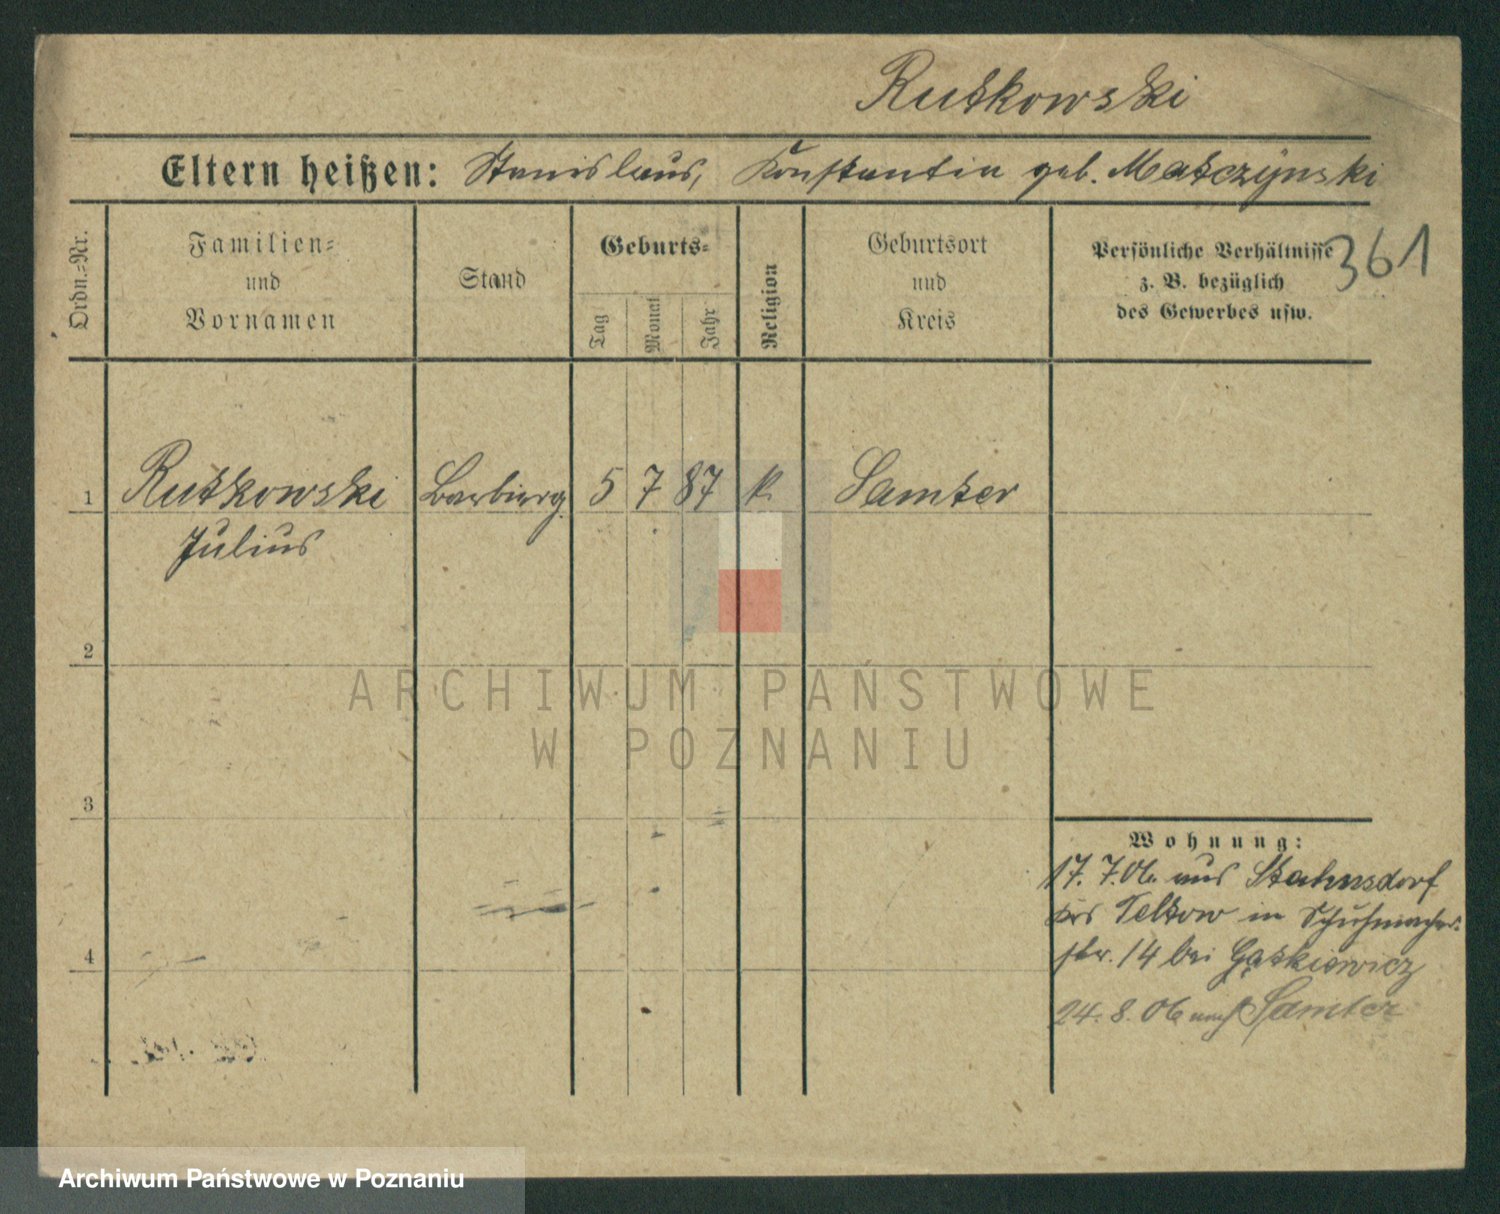 Rutkowski
Eltern heißen: Stanislaus, Konstantin geb. Matczynski
Ordn.-Nr.
Familien-
und
Vornamen
Stand
Geburts-
Tag
Monat
Jahr
Religion
Geburtsort
und
Kreis
Persönliche Verhältnisse
z. B. bezüglich
des Gewerbes usw.
361
1 Rutkowski Barbierg. 5 7 87 k. Samter
Julius
2
ARCHIWUM PAŃSTWOWE
W POZNANIU
3
Wohnung:
17. 7. 06. aus Stahnsdorf
Krs Teltow in Schuhmacher-
str. 14 bei Gąskiewicz
4
24. 8. 06 nach Samter
Archiwum Państwowe w Poznaniu